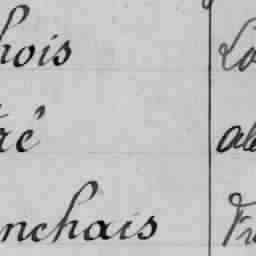 hois Lo
ré ale
nchais Fr